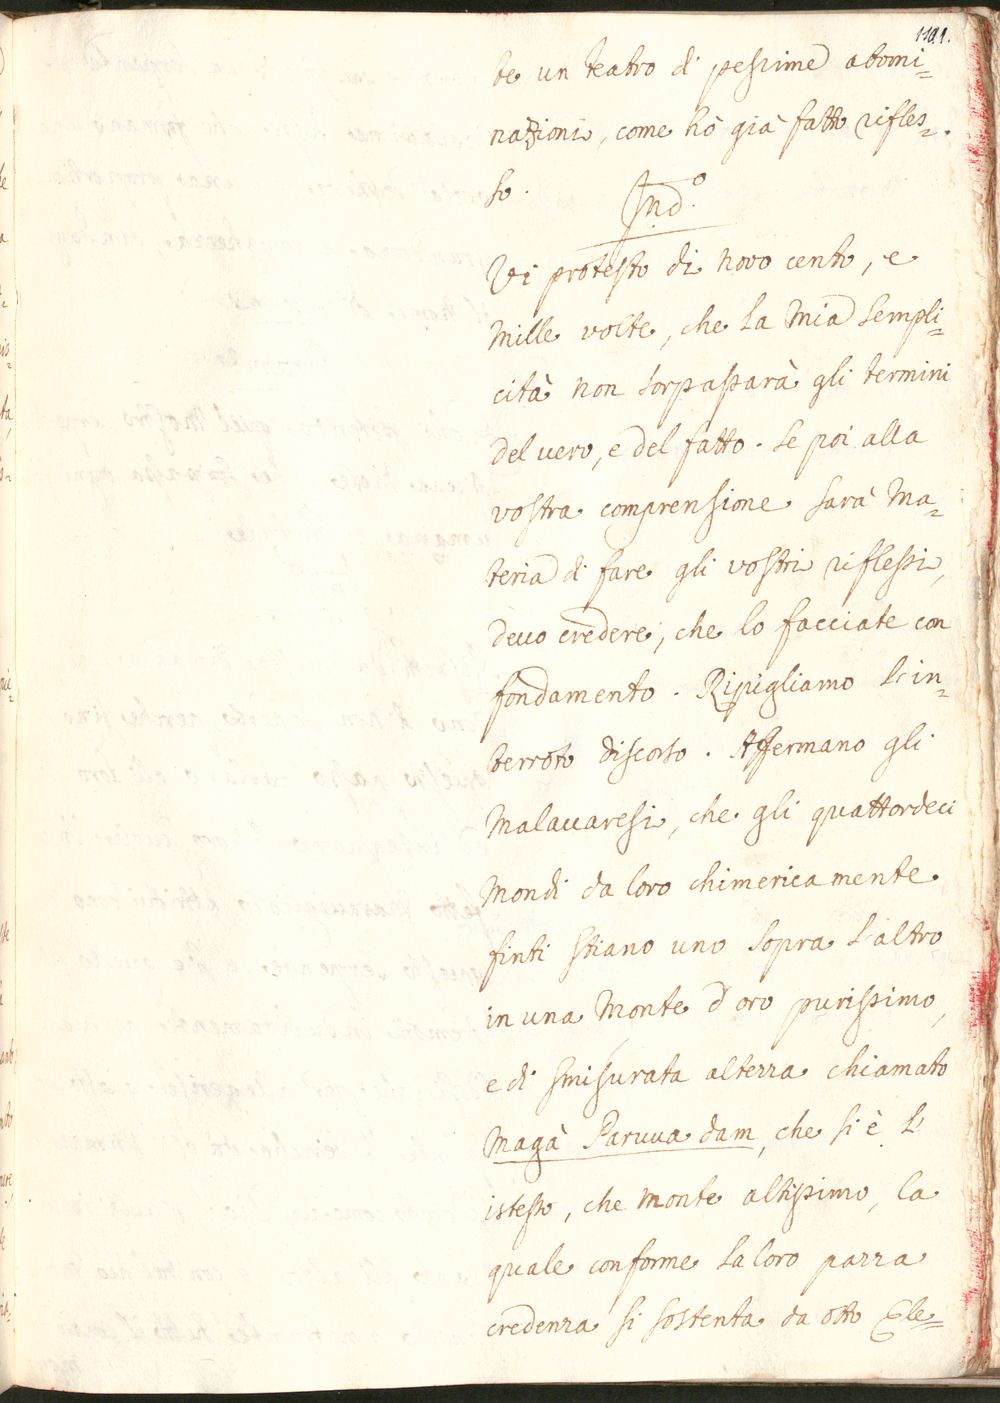 1101.
te un teatro di pessime abomi=
nazioni, come hò già fatto rifles=
so.
Ind.º
Vi protesto di novo cento, e
mille volte, che la mia sempli=
cità non sorpassarà gli termini
del vero, e del fatto. Se poi alla
vostra comprensione sarà ma=
teria di fare gli vostri riflessi,
devo credere, che lo facciate con
fondamento. Ripigliamo l'in=
terroto discorso. Affermano gli
Malavaresi, che gli quattordeci
mondi da loro chimericamente
finti stiano uno sopra l'altro
in una Monte d'oro purissimo,
e di smisurata alterra chiamato
Magà Paruua dam, che si è l'
istesso, che monte altissimo, la
quale conforme la loro pazza
credenza si sostenta da otto Ele=